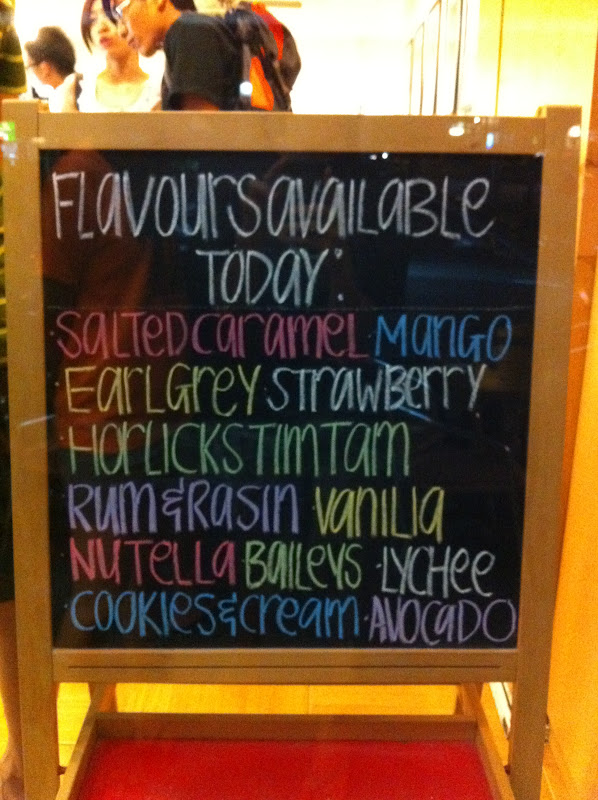 FLavourS avaiLaBLe
TODAY:
·SaLTeD caramel ·Mango
·EarLGrey ·STrawBerry
·HorLICKSTIMTam
·Rum & RaSIN ·vaNILLa
·NuTeLLa ·BaILeys ·LYCHee
·COOKIeS & cream ·AVOCaDO